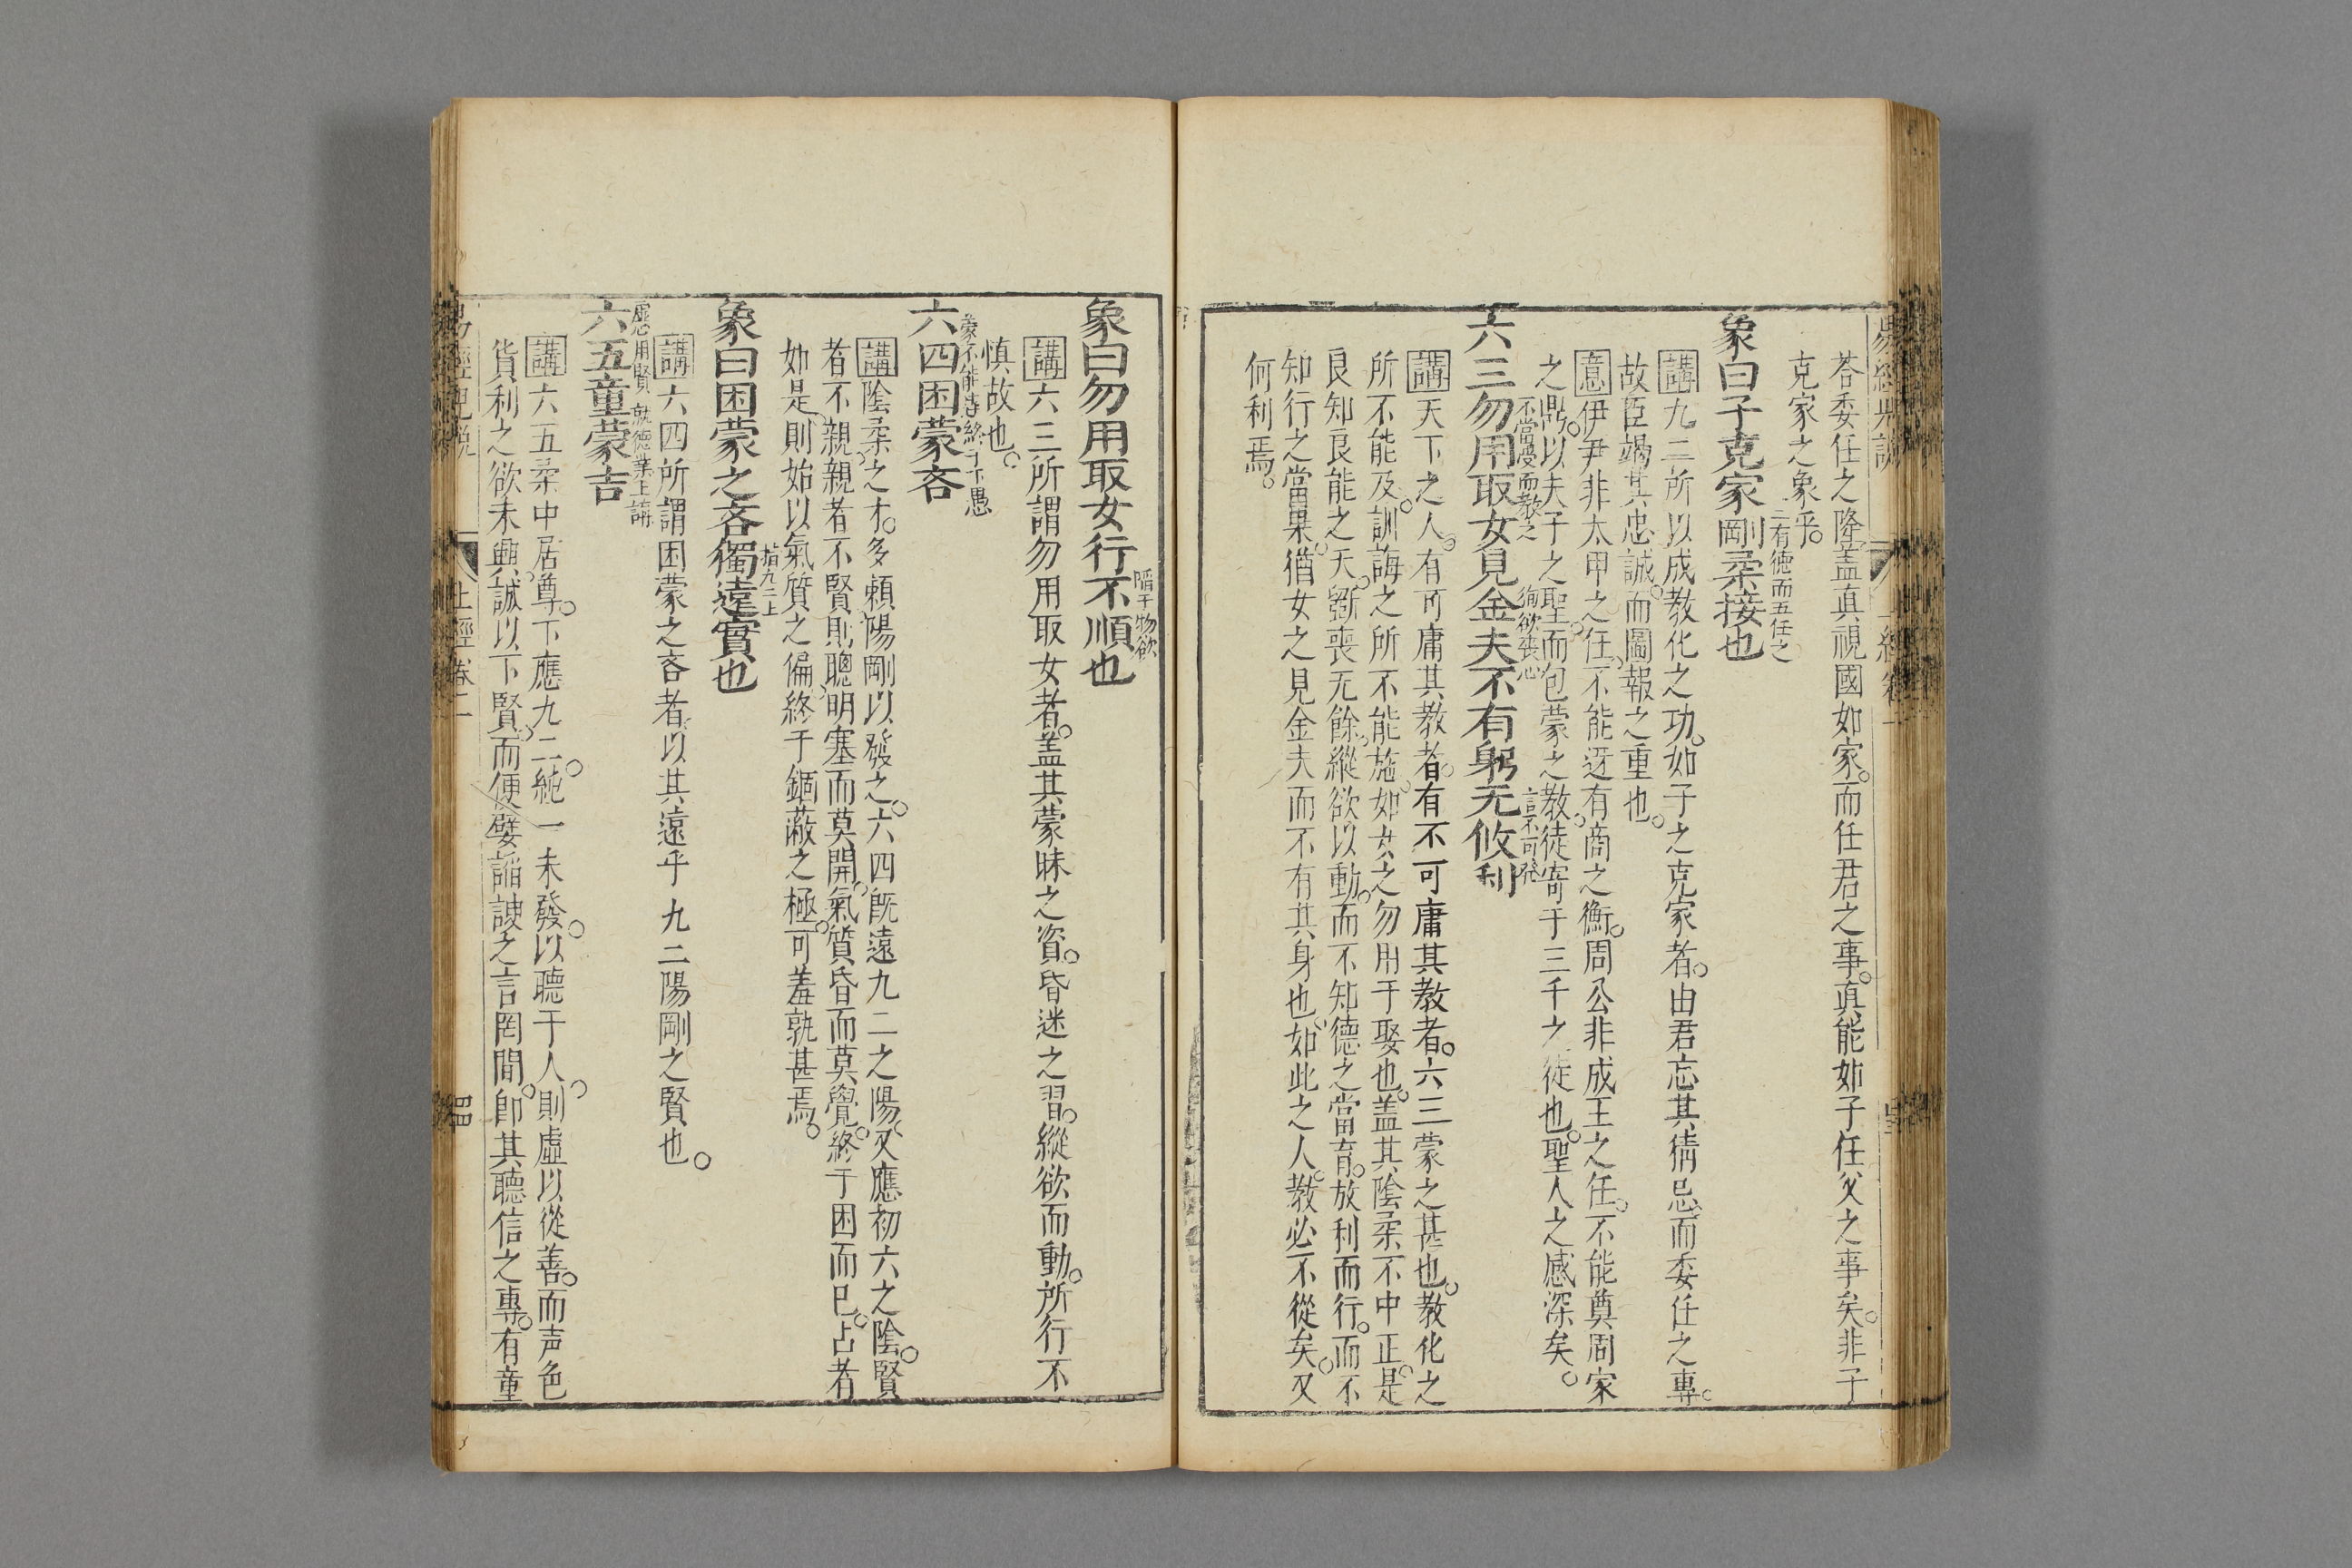 荅委任之隆蓋真視國如家而任君之事真能如子任父之事矣非子
克家之象乎
二有德而五任之
象曰子克家剛柔接也
講九二所以成教化之功如子之克家者由君忘其猜忌而委任之專
故臣竭其忠誠而圖報之重也
意伊尹非太甲之任不能迓有商之衡周公非成王之任不能奠周家
之鼎以夫子之聖而包蒙之教徒寄于三千之徒也聖人之感深矣
不當漫而教之 徇欲喪心 言不可發
六三勿用取女見金夫不有躬无攸利
講天下之人有可庸其教者有不可庸其教者六三蒙之甚也教化之
所不能及訓誨之所不能施如女之勿用于娶也蓋其陰柔不中正是
良知良能之天斵喪无餘縱欲以動而不知德之當育放利而行而不
知行之當果猶女之見金夫而不有其身也如此之人教必不從矣又
何利焉
陷于物欲
象曰勿用取女行不順也
講六三所謂勿用取女者蓋其蒙昧之資昏迷之習縱欲而動所行不
慎故也
蒙不能達終于下愚
六四困蒙吝
講陰柔之才多賴陽剛以發之六四既遠九二之陽又應初六之陰賢
者不親親者不賢則聰明塞而莫開氣質昏而莫覺終于困而已占者
如是則始以氣質之偏終于錮蔽之極可羞孰甚焉
指九二上
象曰困蒙之吝獨遠實也
講六四所謂困蒙之吝者以其遠乎九二陽剛之賢也
虛心用賢 就德業上講
六五童蒙吉
講六五柔中居尊下應九二純一未發以聽于人則虛以從善而声色
貨利之欲未興誠以下賢而便嬖謟諛之言罔間卽其聽信之專有童
上經卷一